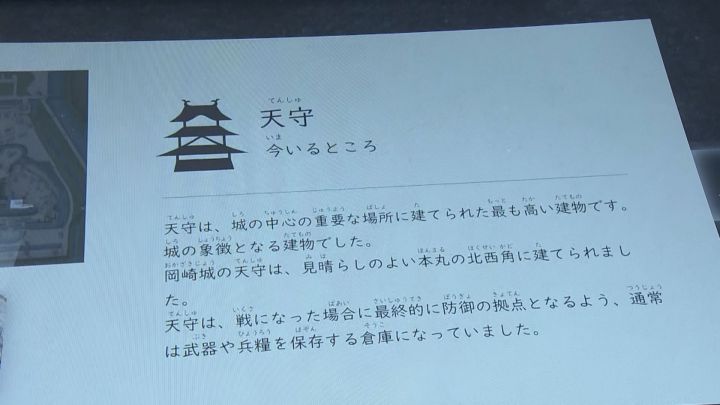 天守
今いるところ
天守は、城の中心の重要な場所に建てられた最も高い建物です。
城の象徴となる建物でした。
岡崎城の天守は、見晴らしのよい本丸の北西角に建てられまし
た。
天守は、戦になった場合に最終的に防御の拠点となるよう、通常
は武器や兵糧を保存する倉庫になっていました。